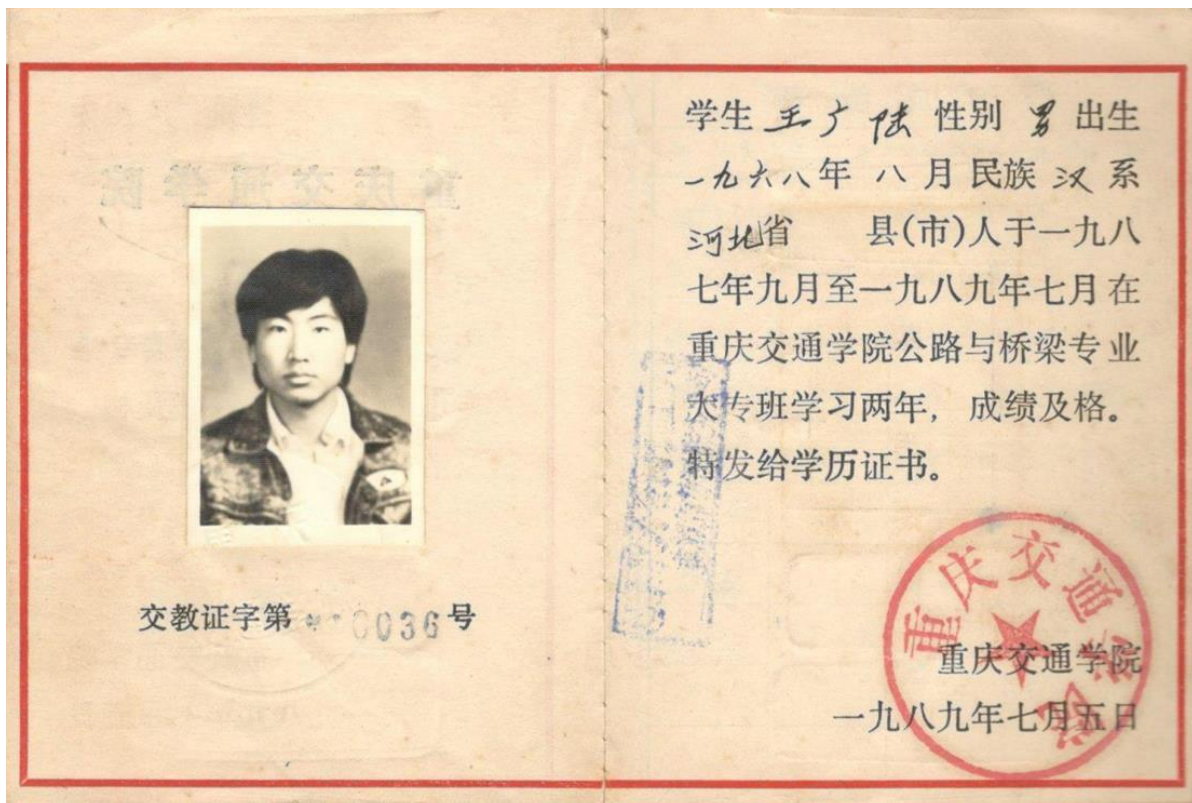 交教证字第 0036号
学生 王广陆 性别 男 出生
一九六八年 八月 民族 汉 系
河北省 县(市)人于一九八
七年九月至一九八九年七月在
重庆交通学院公路与桥梁专业
大专班学习两年，成绩及格。
特发给学历证书。
重庆交通学院
重庆交通学院
一九八九年七月五日